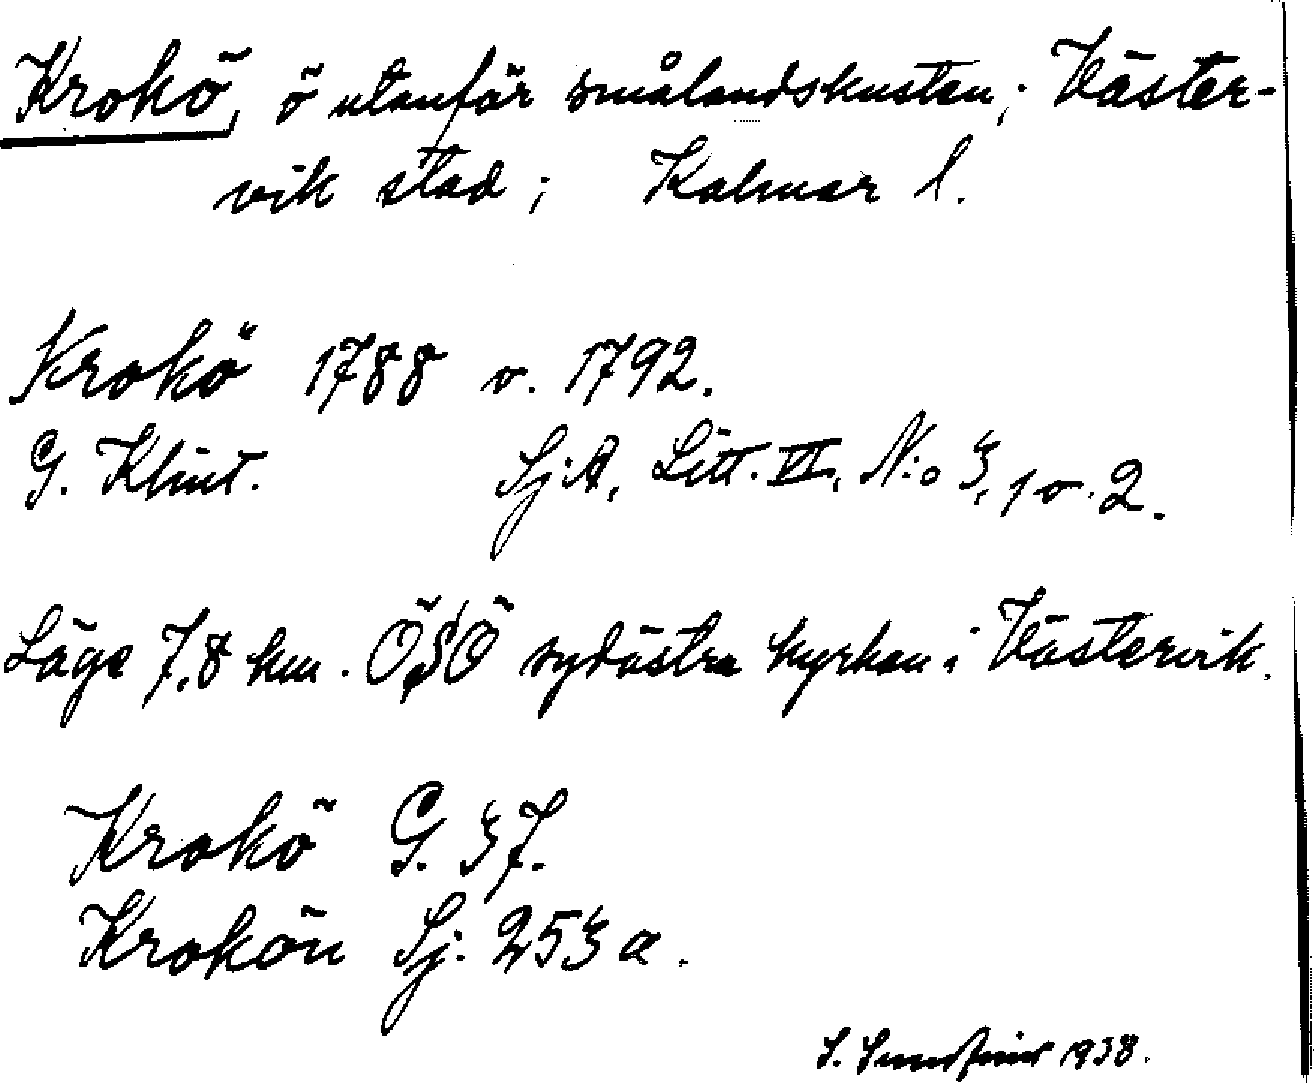 Krokö, ö utanför smålandskusten; Väster-
vik stad; Kalmar l.
Krokö 1788 o. 1792.
G. Klint. Sj.A, Litt. VI, N:o 3, 1 o. 2.
Läge 7,8 km. ÖSÖ sydöstra kyrkan i Västervik.
Krokö G. 37.
Krokön Sj. 253 a.
S. 1938.